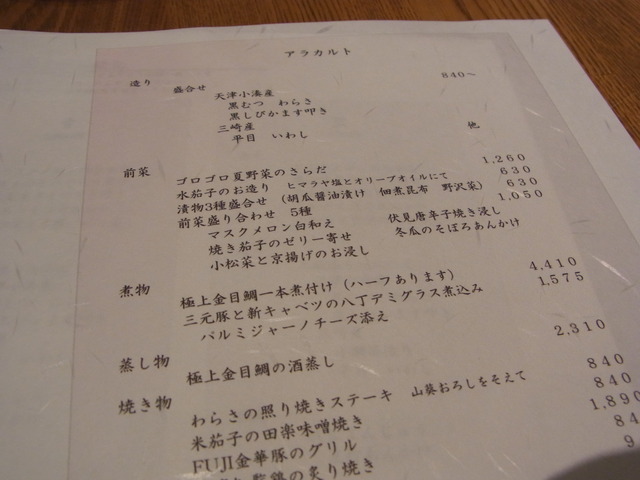 アラカルト
造り 盛合せ 840～
天津小湊産
黒むつ わらさ
黒しびかます叩き
三崎産
平目 いわし 他
前菜 ゴロゴロ夏野菜のさらだ 1,260
水茄子のお造り ヒマラヤ塩とオリーブオイルにて 630
漬物3種盛合せ (胡瓜醤油漬け 佃煮昆布 野沢菜) 630
前菜盛り合わせ 5種 1,050
マスクメロン白和え 伏見唐辛子焼き浸し
焼き茄子のゼリー寄せ 冬瓜のそぼろあんかけ
小松菜と京揚げのお浸し
煮物 極上金目鯛一本煮付け (ハーフあります) 4,410
三元豚と新キャベツの八丁デミグラス煮込み 1,575
パルミジャーノチーズ添え
蒸し物 極上金目鯛の酒蒸し 2,310
焼き物 わらさの照り焼きステーキ 山葵おろしをそえて 840
米茄子の田楽味噌焼き 840
FUJI金華豚のグリル 1,890
鶏の炙り焼き